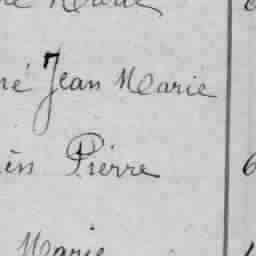 Marie
né Jean Marie
in Pierre 6
Marie